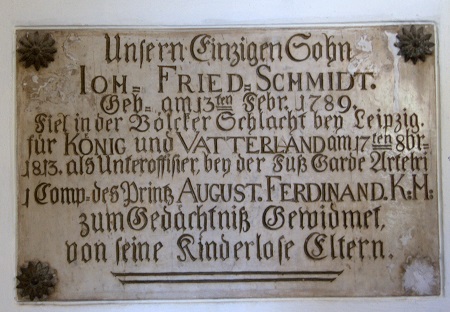 Unsern Einzigen Sohn
IOH= FRIED=SCHMIDT.
Geb= am 13ten Febr. 1789.
Fiel in der Völcker Schlacht bey Leipzig.
für KÖNIG und VATTERLAND am 17ten 8br=
1813. als Unteroffisier, bey der Fuß Garde Arteri
1 Comp. des Printz AUGUST. FERDINAND. K:M:
zum Gedächtniß Gewidmet,
von seine Kinderlose Eltern.